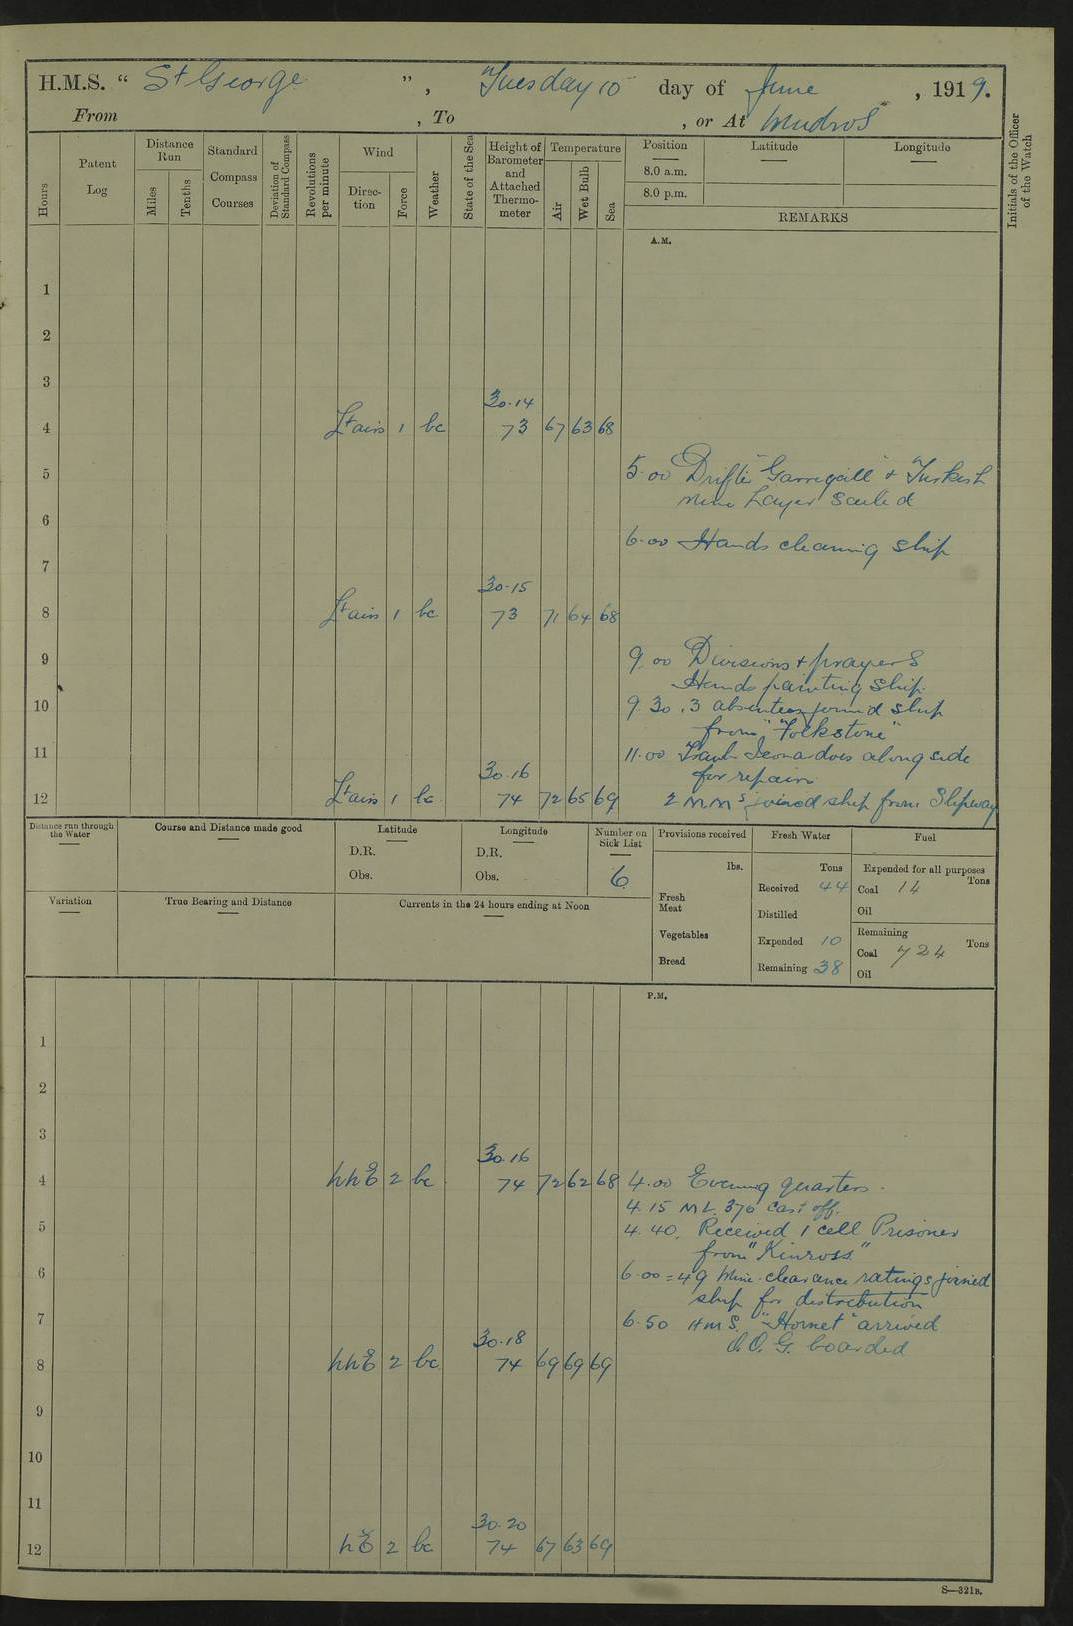 H.M.S. “ St George ”, Tuesday 10 day of June, 1919.
From , To , or At Mudros
Hours
Patent Log
Distance Run
Miles
Tenths
Standard Compass Courses
Deviation of Standard Compass
Revolutions per minute
Wind
Direction
Force
Weather
State of the Sea
Height of Barometer and Attached Thermometer
Temperature
Air
Wet Bulb
Sea
Position
8.0 a.m.
8.0 p.m.
Latitude
Longitude
REMARKS
Initials of the Officer of the Watch
A.M.
1
2
3
30.14
4 Lt airs 1 bc 73 67 63 68
5 5.00 Drifter "Garrigill" & Turkish
mine Layer sailed
6
6.00 Hands cleaning ship
7
30.15
8 Lt airs 1 bc 73 71 64 68
9 9.00 Divisions & prayers
Hands painting ship.
10 9.30. 3 absentees joined ship
from "Folkstone"
11 11.00 alongside
for repairs
30.16
12 Lt airs 1 bc 74 72 65 69 2 MMs joined ship from Slipway
Distance run through the Water
Course and Distance made good
Latitude
D.R.
Obs.
Longitude
D.R.
Obs.
Number on Sick List
6
Provisions received
lbs.
Fresh Meat
Vegetables
Bread
Fresh Water
Tons
Received 44
Distilled
Expended 10
Remaining 38
Fuel
Expended for all purposes
Tons
Coal 14
Oil
Remaining
Tons
Coal 724
Oil
Variation
True Bearing and Distance
Currents in the 24 hours ending at Noon
P.M.
1
2
3
30.16
4 NNE 2 bc 74 72 62 68 4.00 Evening quarters.
4.15 ML 370 cast off.
5 4.40. Received 1 cell Prisoner
from "Kinross"
6 6.00 = 49 Mine clearance ratings joined
ship for distribution
7 6.50 HMS. "Hornet" arrived
O.O.G. boarded
30.18
8 NNE 2 bc 74 69 69 69
9
10
11
30.20
12 NE 2 bc 74 67 63 69
S—321B.